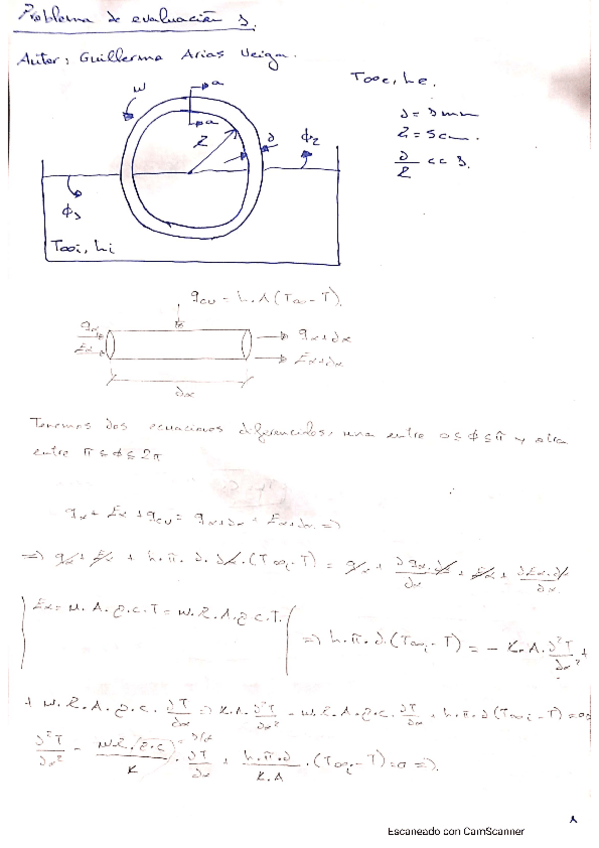 Problema de evaluación 1.
Autor: Guillermo Arias Veiga.
T∞e, he.
d = 1 mm
R = 5 cm.
d/R << 1.
w
a
a
R
d
ϕ2
ϕ1
T∞i, hi
qcv = h.A(T∞ - T).
qx
Ex
qx+dx
Ex+dx
dx
Tenemos dos ecuaciones diferenciales, una entre 0 ≤ ϕ ≤ π y otra
entre π ≤ ϕ ≤ 2π
qx + Ex + qcv = qx+dx + Ex+dx. =>
=> qx + Ex + h.π.d.dx.(T∞i - T) = qx + ∂qx.dx/∂x + Ex + ∂Ex.dx/∂x.
Ex = M.A.ρ.c.T = w.R.A.ρ.c.T. => h.π.d.(T∞i - T) = - K.A.∂²T/∂x² +
+ w.R.A.ρ.c.∂T/∂x => K.A.∂²T/∂x² - w.R.A.ρ.c.∂T/∂x + h.π.d(T∞i - T) = 0 =>
∂²T/∂x² - w.R.(ρ.c)/K . ∂T/∂x + h.π.d/K.A . (T∞i - T) = 0 =>.
1
Escaneado con CamScanner